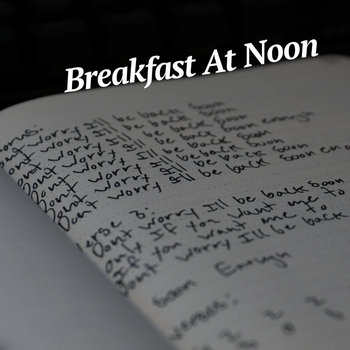 Breakfast At Noon
Chorus:
Dont worry Ill be back soon
Dont worry Ill be back soon
Dont worry Ill be back soon enough
Dont worry Ill be back soon
Dont worry Ill be back soon
Dont worry Ill be back soon
Verse 3:
Dont worry Ill be back soon
Only If you want me to
If you want me to
Dont worry Ill be back
Soon Enough